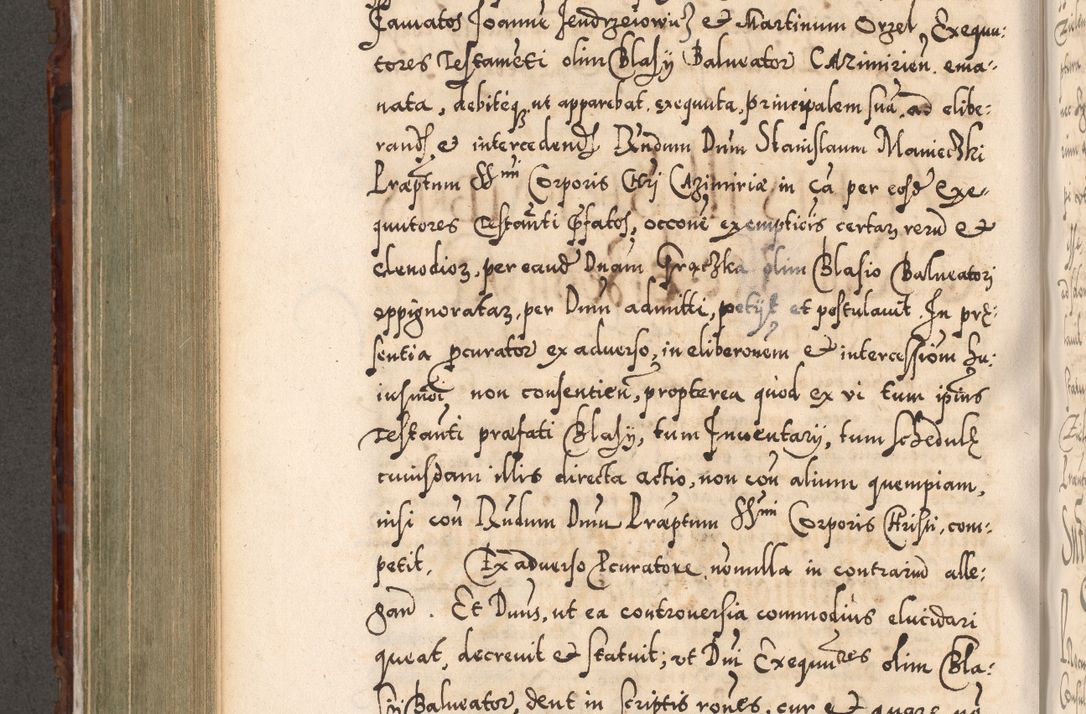 Famatos Joanne Jendrzeiowicz et Martinum Orzel, Exequu-
tores Testameti olim Blasij Balneator CAzimirien. ema-
nata, debiteq, ut apparebat, exequuta, principalem suā, ad elibe-
rand et intercedend Rndum Dnm Stanislaum Manieczki
Præptum SSmi Corporis Chri CAzimiriæ in cā per eosd exe-
quutores Testanti Pfatos, occone exemptiōis certaz reru et
clenodioz, per eand Dnam Grączka olim Blasio Balneatori
oppignorataz, per Dnm admitti, petijt et postulauit. In præ-
sentia pcurator ex aduerso, in eliberonem et intercessiom hu-
iusmoi non consentien, propterea quod ex vi tum ipsius
Testanti præfati Blasij, tum Inuentarij, tum schedulæ
cuiusdam illis directa actio, non con alium quempiam,
nisi con Rndum Dnm Præptum SSmi Corporis Christi, com-
petit. Ex aduerso Pcuratore nonnulla in contrariu alle-
gan. Et Dnus, ut ea controuersia commodius elucidari
queat, decreuit et statuit; ut Dni Exequutres olim Bla-
sij Balneator, dent in scriptis rones, cur et quare no